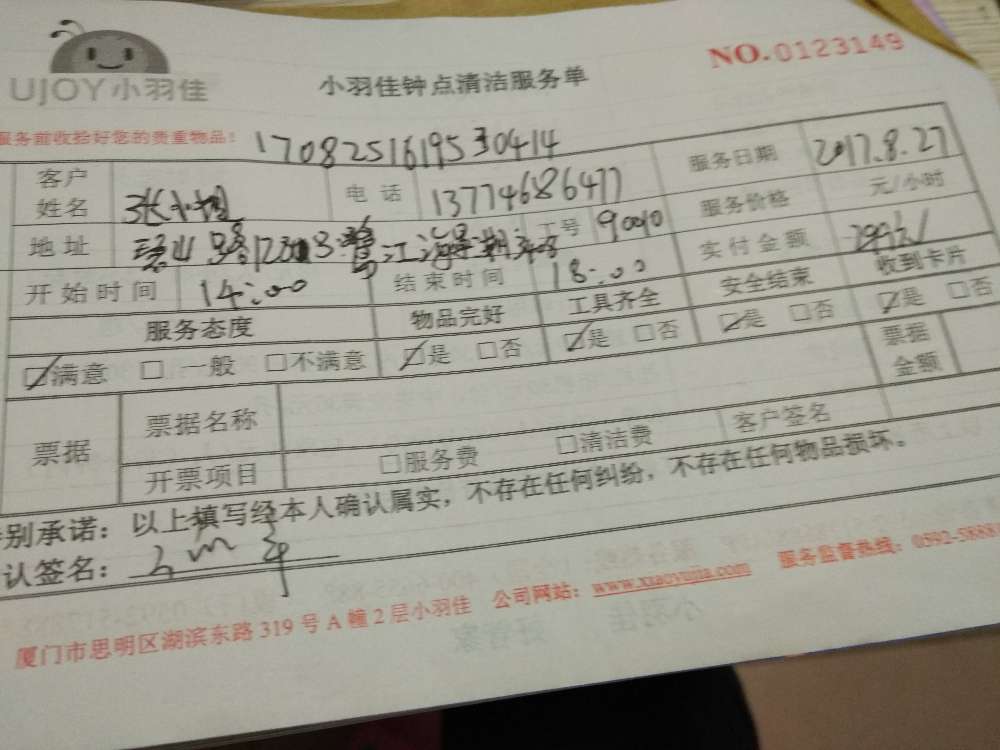 UJOY小羽佳
小羽佳钟点清洁服务单
NO.0123149
服务前收拾好您的贵重物品：
170825161953 0414
客户姓名 张小 电话 13774686477 服务日期 2017.8.27
地址 工号 90010 服务价格 元/小时
开始时间 14:00 结束时间 18:00 实付金额
服务态度 物品完好 工具齐全 安全结束 收到卡片
☑满意 □一般 □不满意 ☑是 □否 ☑是 □否 ☑是 □否 ☑是 □否
票据 票据名称 票据金额
开票项目 □服务费 □清洁费 客户签名
别承诺：以上填写经本人确认属实，不存在任何纠纷，不存在任何物品损坏。
认签名：
厦门市思明区湖滨东路 319 号 A 幢 2 层小羽佳 公司网站：www.xiaoyujia.com 服务监督热线：0592-5888